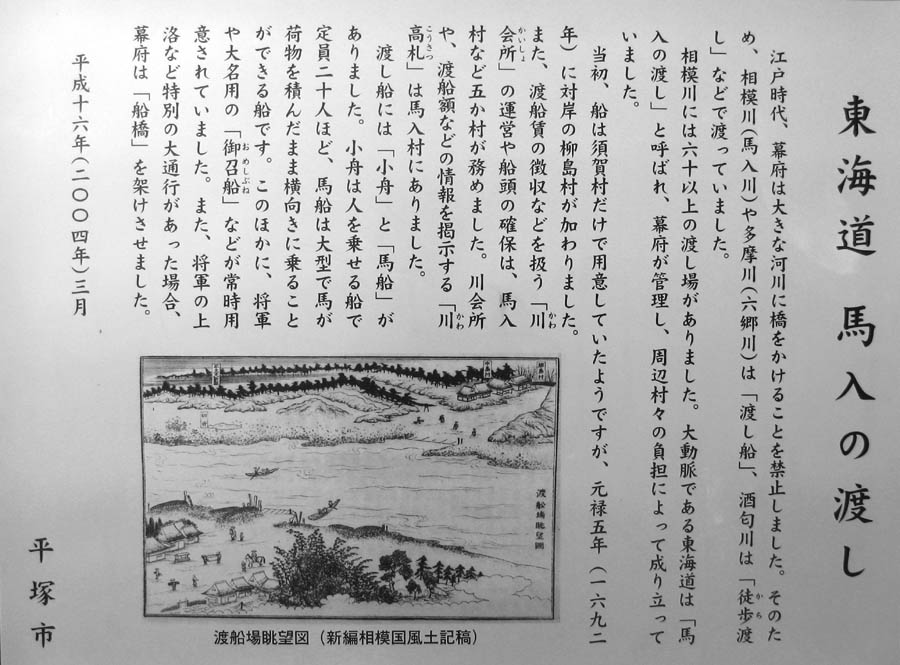 東海道 馬入の渡し
江戸時代、幕府は大きな河川に橋をかけることを禁止しました。そのた
め、相模川(馬入川)や多摩川(六郷川)は「渡し船」、酒匂川は「徒歩渡
し」などで渡っていました。
相模川には六十以上の渡し場がありました。大動脈である東海道は「馬
入の渡し」と呼ばれ、幕府が管理し、周辺村々の負担によって成り立って
いました。
当初、船は須賀村だけで用意していたようですが、元禄五年(一六九二
年)に対岸の柳島村が加わりました。
また、渡船賃の徴収などを扱う「川
会所」の運営や船頭の確保は、馬入
村など五か村が務めました。川会所
や、渡船額などの情報を掲示する「川
高札」は馬入村にありました。
渡し船には「小舟」と「馬船」が
ありました。小舟は人を乗せる船で
定員二十人ほど、馬船は大型で馬が
荷物を積んだまま横向きに乗ること
ができる船です。このほかに、将軍
や大名用の「御召船」などが常時用
意されていました。また、将軍の上
洛など特別の大通行があった場合、
幕府は「船橋」を架けさせました。
平成十六年(二〇〇四年)三月
平塚市
渡船場眺望圖
渡船場眺望図(新編相模国風土記稿)